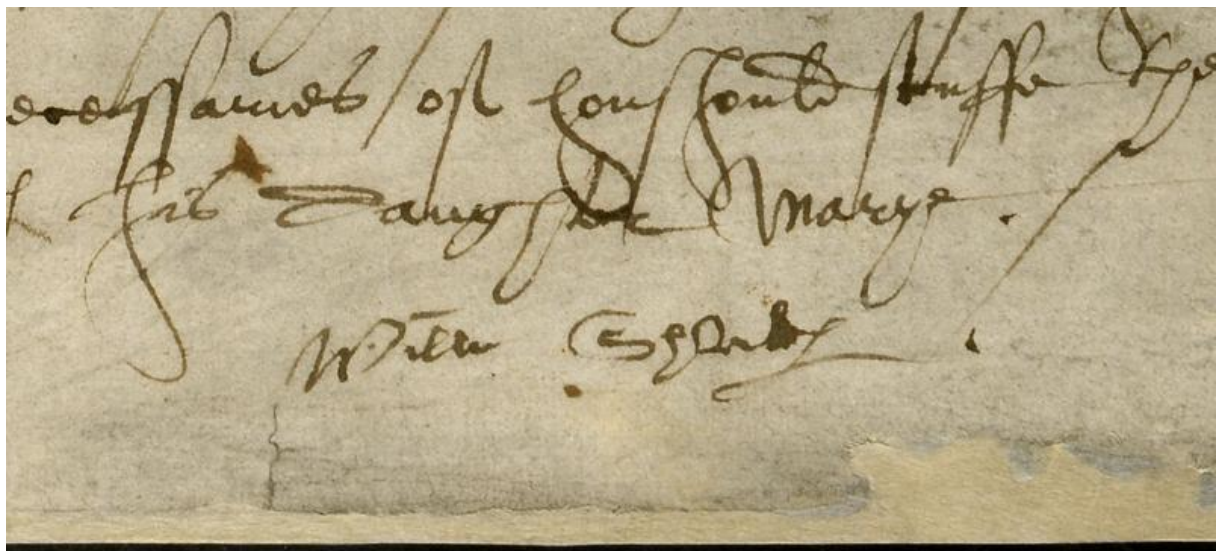 ecessaries of houshould stuffe
his daughter Marye.
Willm Shakp